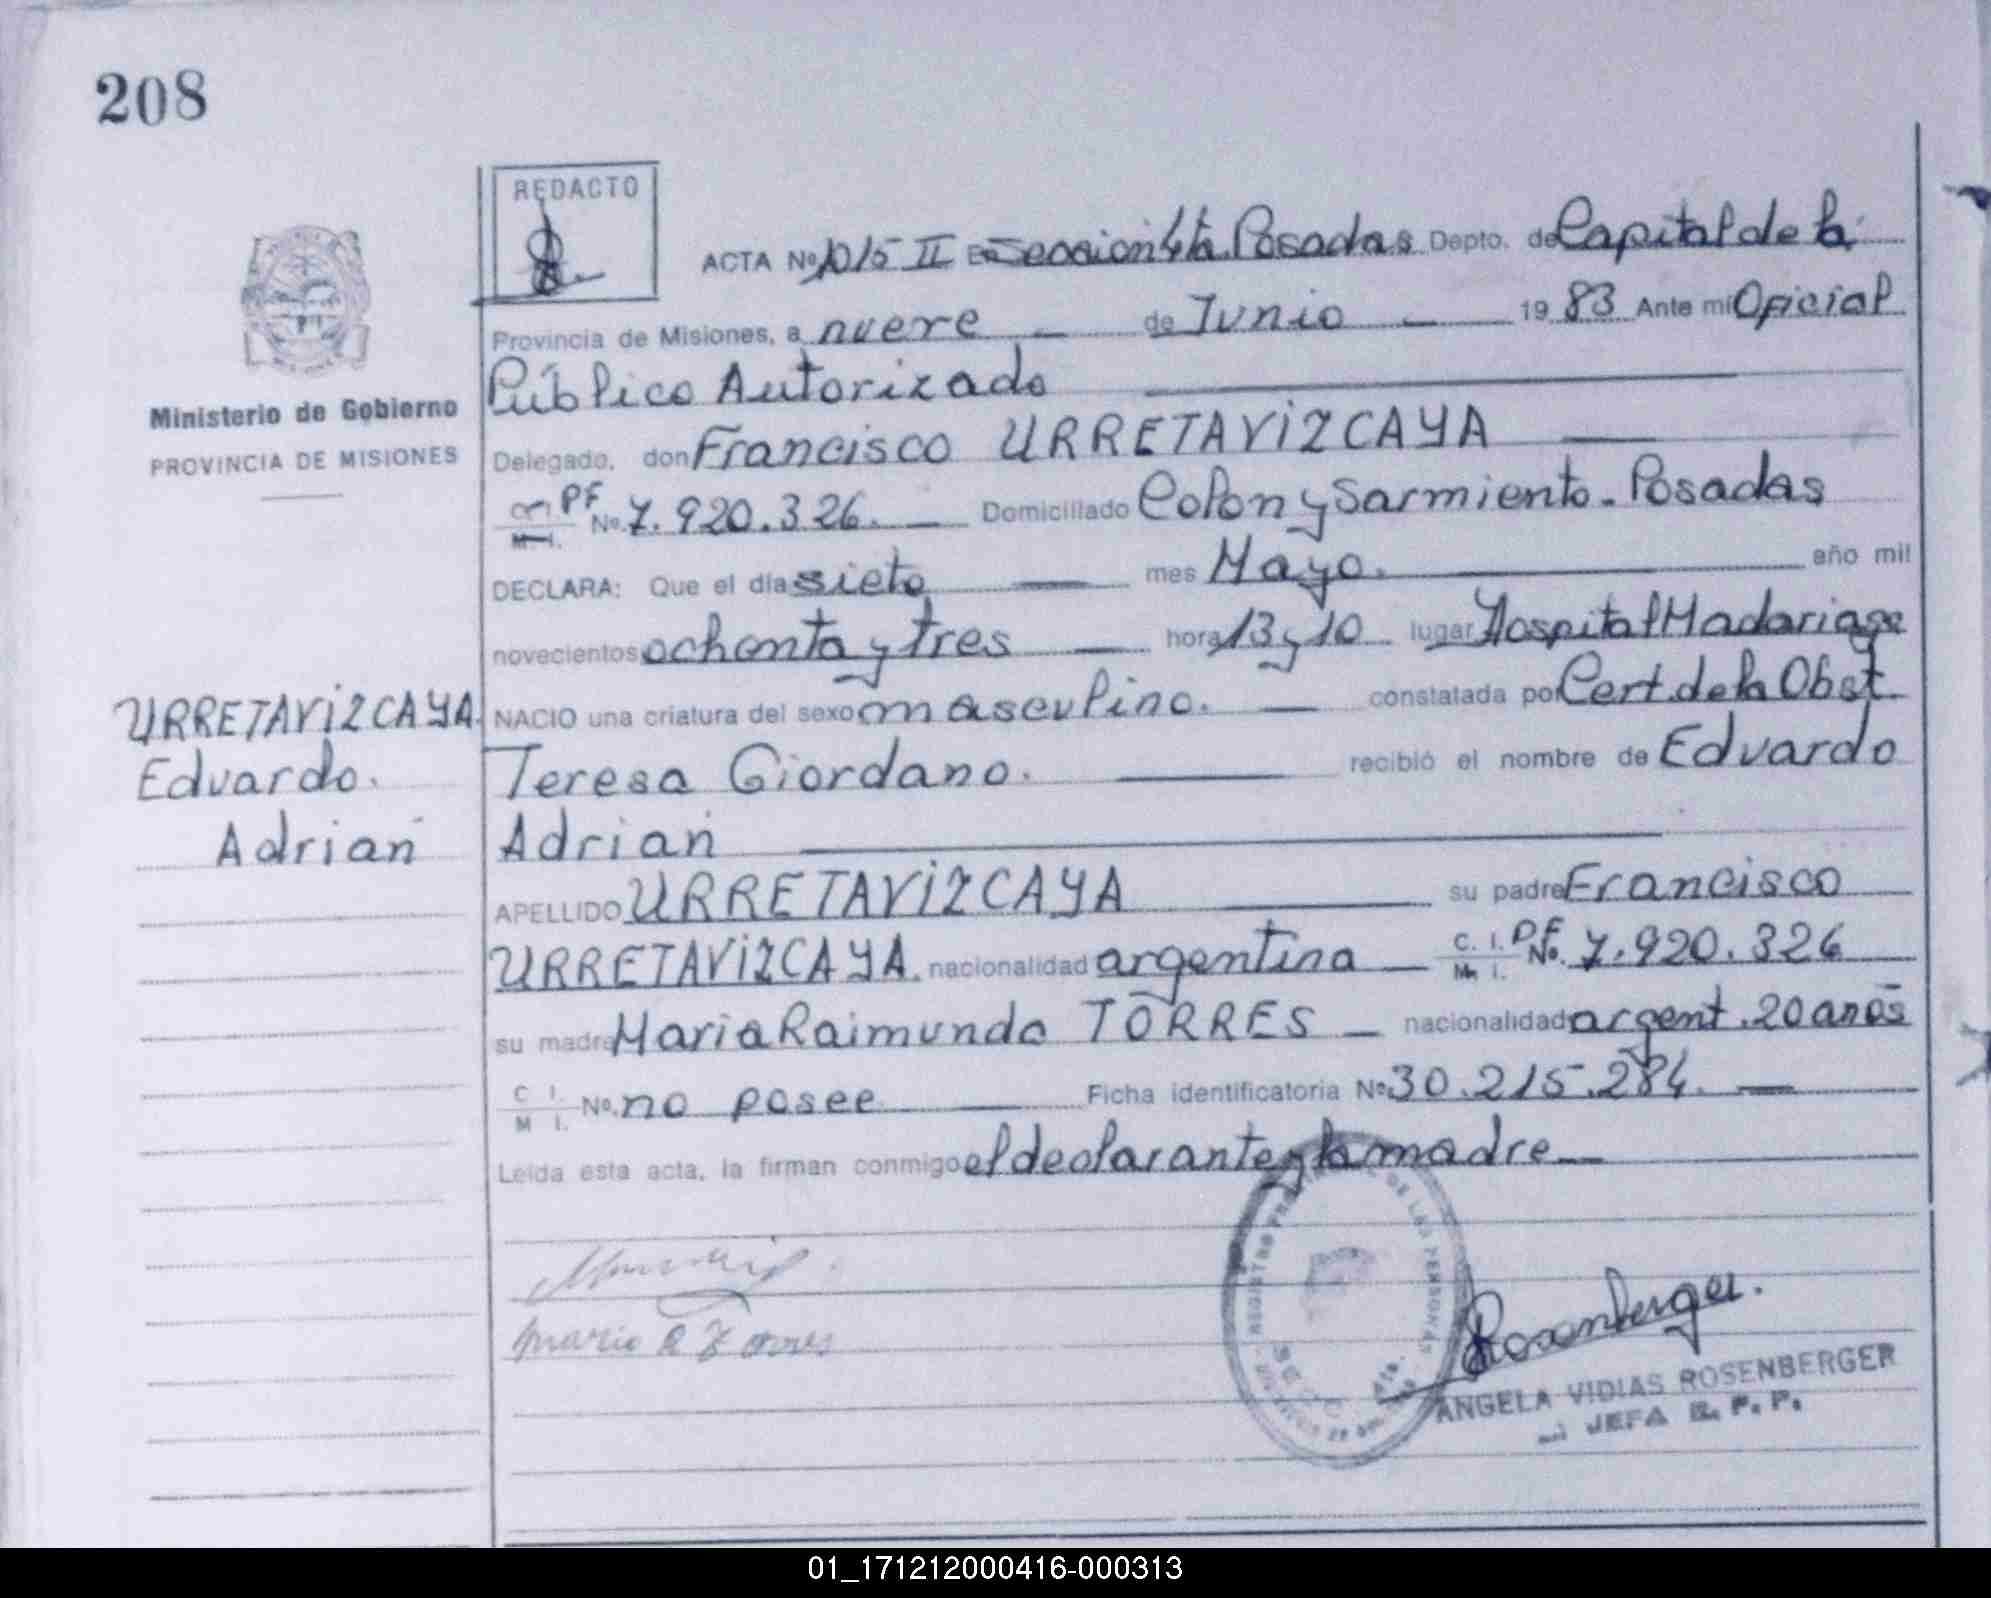 208
REDACTO
ACTA Nº 1015 II En Seccion 4ta. Posadas Depto. de Capital de la
Provincia de Misiones, a nueve de Junio 19 83 Ante mi Oficial
Público Autorizado
Ministerio de Gobierno
PROVINCIA DE MISIONES
Delegado, don Francisco URRETAVIZCAYA
C. I. M. I. PF No. 7.920.326. Domiciliado Colon y Sarmiento - Posadas
DECLARA: Que el día siete mes Mayo. año mil
novecientos ochenta y tres hora 13 y 10 lugar Hospital Madariaga
URRETAVIZCAYA NACIO una criatura del sexo masculino. constatada por Cert. de la Obst.
Eduardo. Teresa Giordano. recibió el nombre de Eduardo
Adrian Adrian
APELLIDO URRETAVIZCAYA su padre Francisco
URRETAVIZCAYA. nacionalidad argentina C. I. M. I. PF No. 7.920.326
su madre Maria Raimunda TORRES nacionalidad argent. 20 años
C I. M I. No. no posee Ficha identificatoria Nº 30.215.284.
Leída esta acta, la firman conmigo el declarante y la madre
Maria R Torres
Rosenberger
ANGELA VIDIAS ROSENBERGER
JEFA R. P. P.
01_171212000416-000313